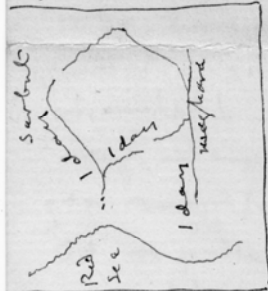 Sarbut
1 day
1 day
1 day
Red
Sea